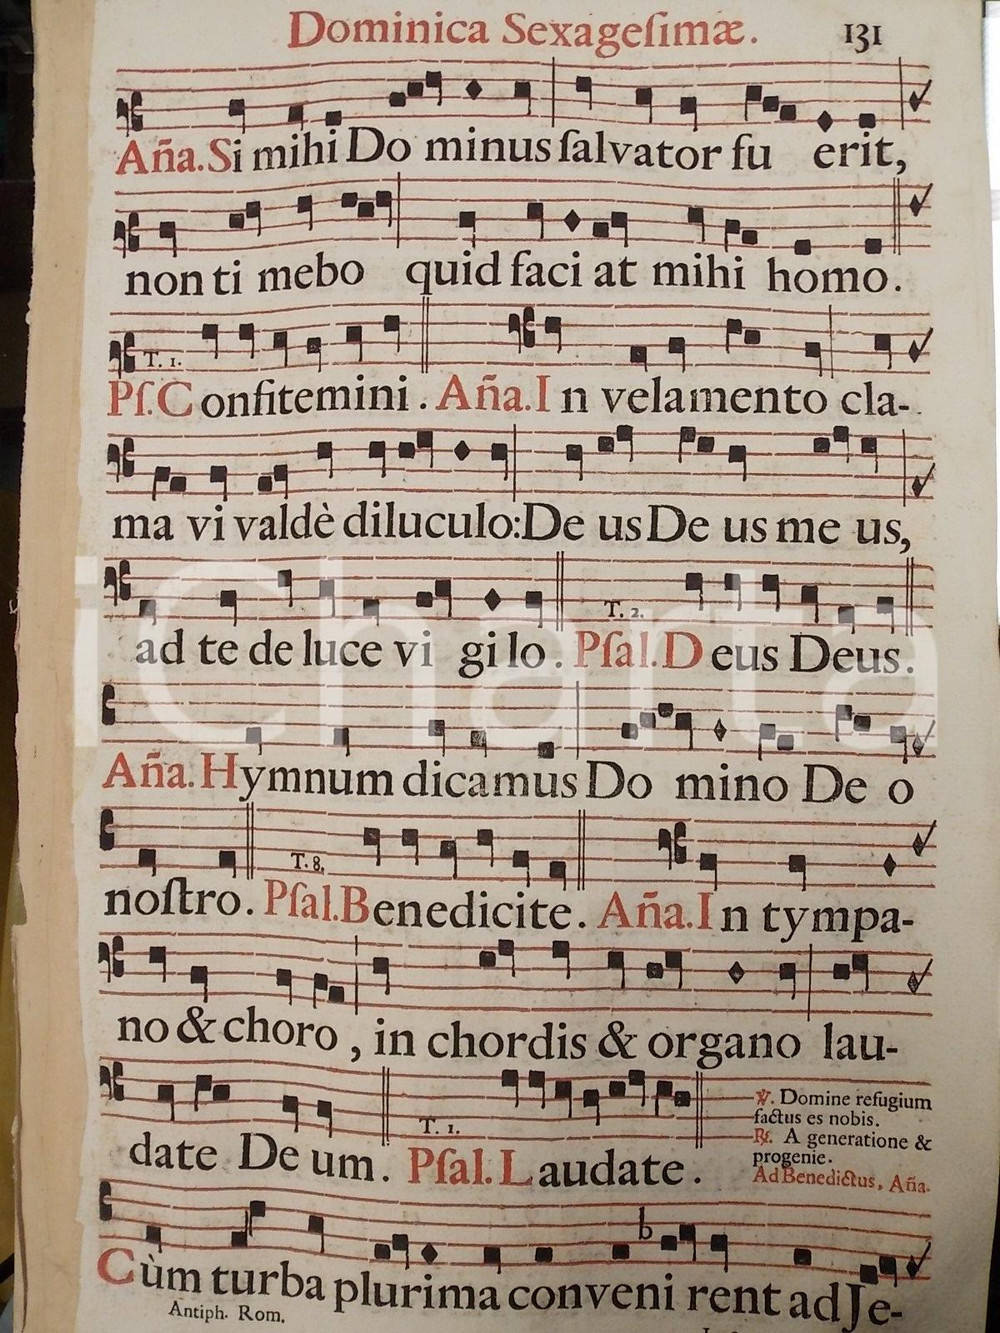 Dominica Sexageſimæ. 131
Aña. Si mihi Do minus ſalvator fu erit,
non ti mebo quid faci at mihi homo.
T. 1.
Pſ. C onfitemini. Aña. I n velamento cla-
ma vi valdè diluculo: De us De us me us,
T. 2.
ad te de luce vi gi lo. Pſal. D eus Deus.
Aña. Hymnum dicamus Do mino De o
T. 8.
noſtro. Pſal. Benedicite. Aña. I n tympa-
no & choro, in chordis & organo lau-
T. 1.
date De um. Pſal. L audate.
℣. Domine refugium
factus es nobis.
℟. A generatione &
progenie.
Ad Benedictus, Aña.
b
Cùm turba plurima conveni rent ad Je-
Antiph. Rom.
iCharta